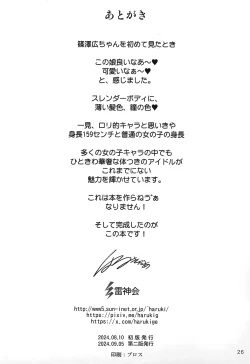 あとがき
篠澤広ちゃんを初めて見たとき
この娘良いなあ～♥
可愛いなぁ～♥
と、感じました。
スレンダーボディに、
薄い髪色、瞳の色♥
一見、ロリ的キャラと思いきや
身長159センチと普通の女の子の身長
多くの女の子キャラの中でも
ひときわ華奢な体つきのアイドルが
これまでにない
魅力を輝かせています。
これは本を作らねうﾞぁ
なりません！
そして完成したのが
この本です！
雷神会
http://www5.sun-inet.or.jp/~haruki/
https://pixiv.me/harukig
https://x.com/harukige
2024.08.10 初版発行
2024.09.05 第二版発行
印刷：プロス
25